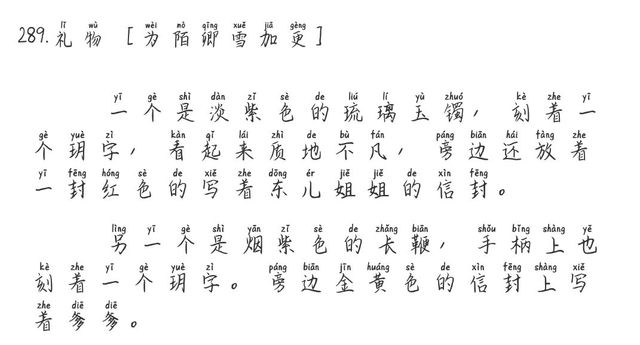 lǐ wù wèi mò qīng xuě jiā gèng
289.礼物 [为陌卿雪加更]
yī gè shì dàn zǐ sè de liú lí yù zhuó kè zhe yī
一个是淡紫色的琉璃玉镯，刻着一
gè yuè zì kàn qǐ lái zhì de bù fán páng biān hái fàng zhe
个玥字，看起来质地不凡，旁边还放着
yī fēng hóng sè de xiě zhe dōng ér jiě jiě de xìn fēng
一封红色的写着东儿姐姐的信封。
lìng yī gè shì yān zǐ sè de zhǎng biān shǒu bǐng shàng yě
另一个是烟紫色的长鞭，手柄上也
kè zhe yī gè yuè zì páng biān jīn huáng sè de xìn fēng shàng xiě
刻着一个玥字。旁边金黄色的信封上写
zhe diē diē
着爹爹。